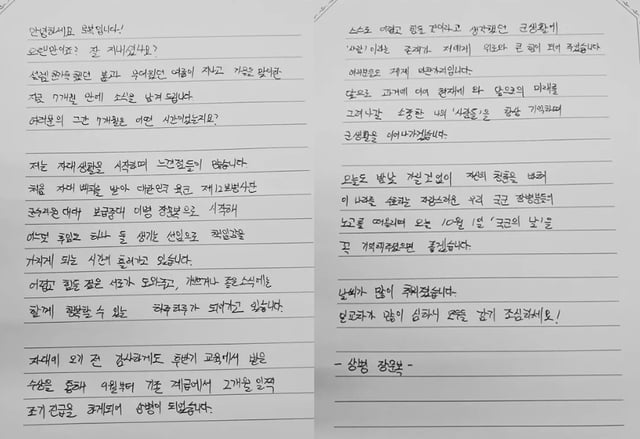 안녕하세요 윤복입니다!
오랜만이죠? 잘 지내셨나요?
설렘 문가득했던 봄과 무더웠던 여름이 지나고 가을을 맞이한
지금 7개월 만에 소식을 남겨 드립니다.
여러분의 그간 7개월은 어떤 시간이었는지요?
저는 자대생활을 시작하며 느낀점들이 많습니다.
처음 자대 배치를 받아 대한민국 육군 제12보병사단
군수지원대대 보급중대 이병 장윤복으로 시작해
어느덧 후임도 하나 둘 생기는 선임으로 책임감을
가지게 되는 시간이 흘러가고 있습니다.
어렵고 힘든 점은 서로가 도와주고, 기쁘거나 좋은소식에는
함께 행복할 수 있는 하루하루가 되어가고 있습니다.
자대에 오기 전 감사하게도 후반기 교육에서 받은
수상을 통해 9월부터 기존 계급에서 2개월 일찍
조기 진급을 하게되어 상병이 되었습니다.
스스로 어렵고 힘든 것이라고 생각했던 군생활에
'사람'이라는 존재가 저에게 위로와 큰 힘이 되어 주었습니다
여러분들도 제게 마찬가지입니다.
앞으로 과거에 이어 현재에 와 앞으로의 미래를
그려나갈 소중한 나의 '사람들'을 항상 기억하며
군생활을 이어나가겠습니다.
오늘도 밤낮 가릴것 없이 전선 청춘을 바쳐
이 나라를 수호하는 자랑스러운 우리 국군 장병분들의
노고를 떠올리며 오는 10월 1일 '국군의 날'을
꼭 기억해주었으면 좋겠습니다.
날씨가 많이 추워졌습니다.
일교차가 많이 심하니 모두들 감기 조심하세요!
- 상병 장윤복 -